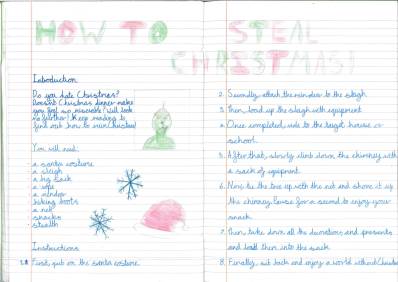 HOW TO STEAL
CHRISTMAS!
Introduction
Do you hate Christmas?
Doesn't Christmas dinner make
you feel so miserable? Well look
no further! Keep reading to
find out how to ruin Christmas!
You will need:
a santa costume
a sleigh
a big sack
a rope
a reindeer
hiking boots
a net
snacks
stealth
Instructions
1. First, put on the santa costume.
2. Secondly, attach the reindeer to the sleigh.
3. Then, load up the sleigh with equipment.
4. Once completed, ride to the target house or
school.
5. After that, slowly climb down the chimney with
a sack of equipment.
6. Now, tie the tree up with the net and shove it up
the chimney. Pause for a second to enjoy your
snack.
7. Then, take down all the decorations and presents
and load them into the sack.
8. Finally, sit back and enjoy a world without Christmas